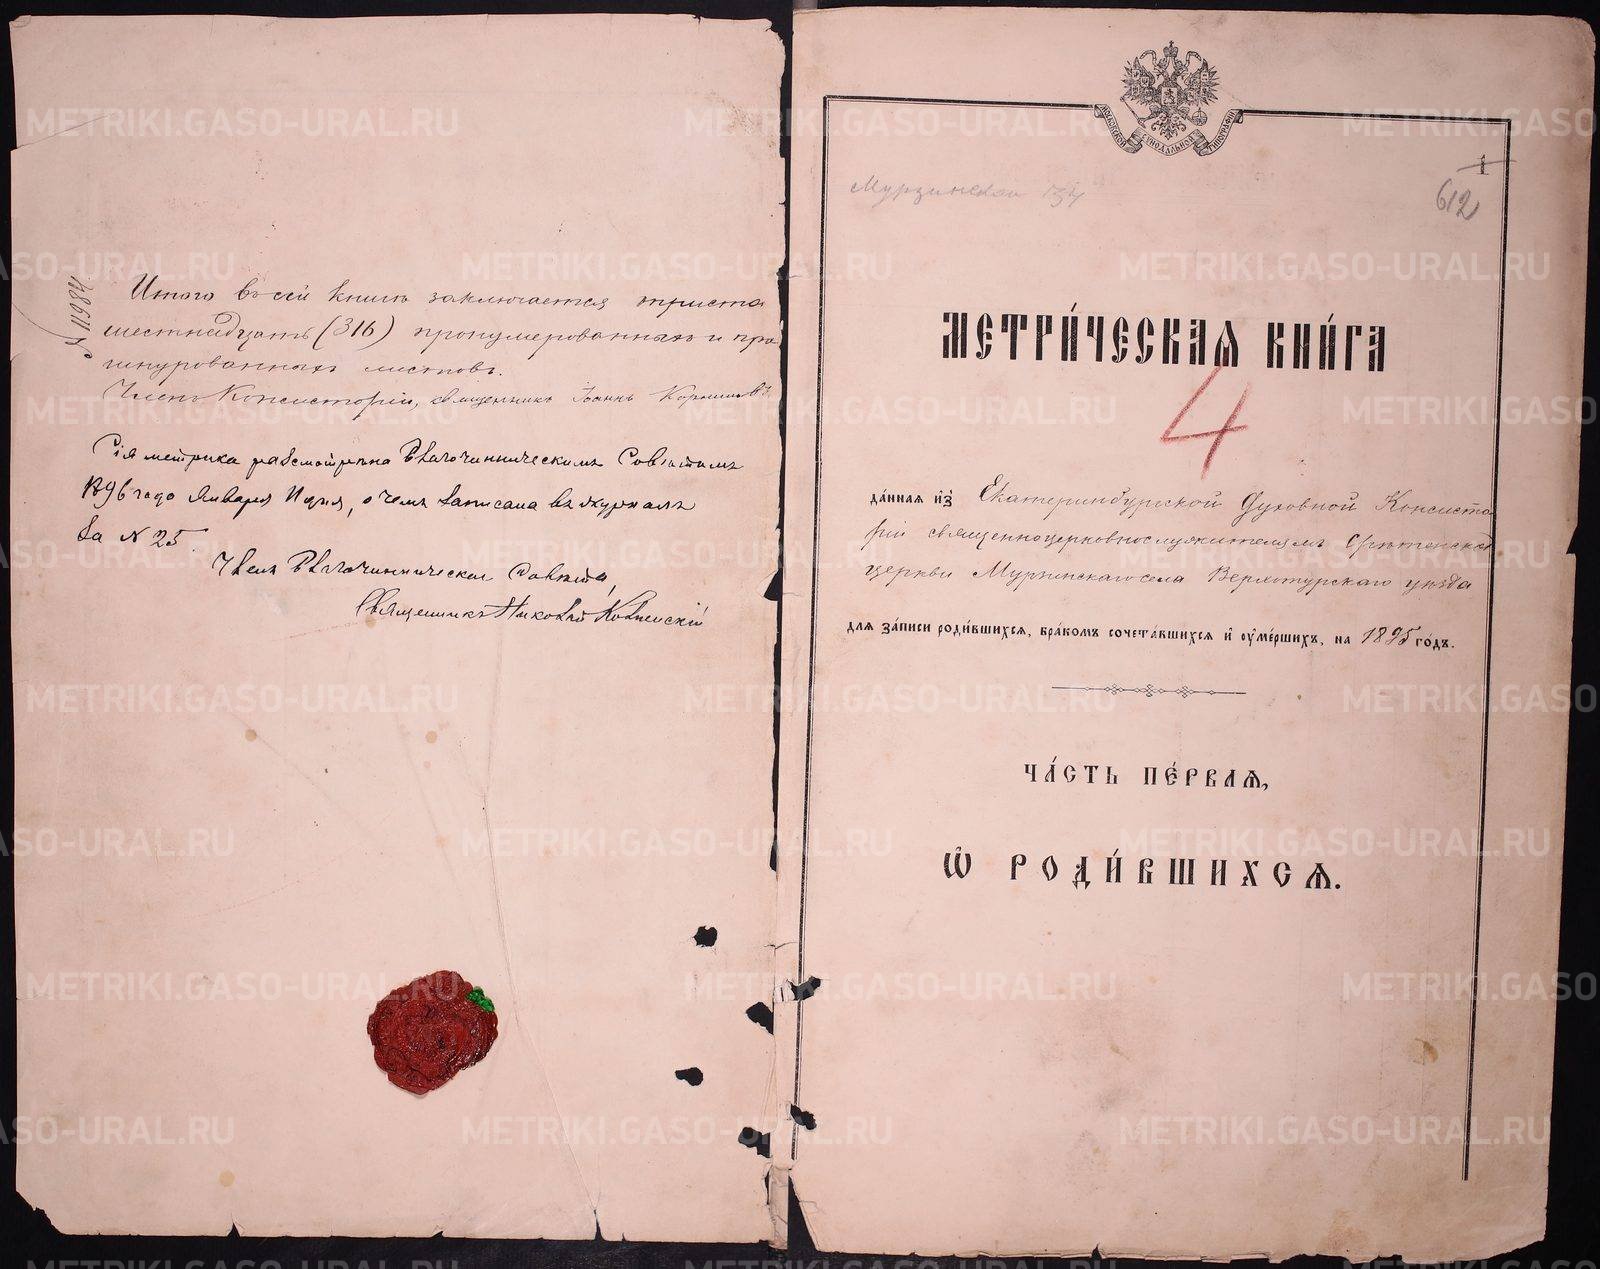 № 11984
Итого въ сей книгѣ заключается триста
шестнадцать (316) пронумерованныхъ и про
шнурованныхъ листовъ.
Членъ Консисторіи, священникъ Іоаннъ
Сія метрика разсмотрѣна Благочинническимъ Совѣтомъ
1896 года Января дня, о чемъ записана въ журналѣ
за № 25.
Членъ Благочинническаго Совѣта,
Священникъ Николай
МОСКОВСКОЙ СѴНОДАЛЬНОЙ ТИПОГРАФІИ
1
612
Мурзинской 134
МЕТРИ́ЧЕСКАѦ КНИ́ГА
4
да́ннаѧ и҆з̾ Екатеринбургской Духовной Консисто
ріи священноцерковнослужителямъ Срѣтенской
церкви Мурзинскаго села Верхотурскаго уѣзда
длѧ за́писи роди́вшихсѧ, бра́комъ сочета́вшихсѧ и҆ ᲂу҆ме́ршихъ, на 1895 го́дъ.
ЧА́СТЬ ПЕ́РВАѦ,
Ѽ РОДИ́ВШИХСѦ.
METRIKI.GASO-URAL.RU